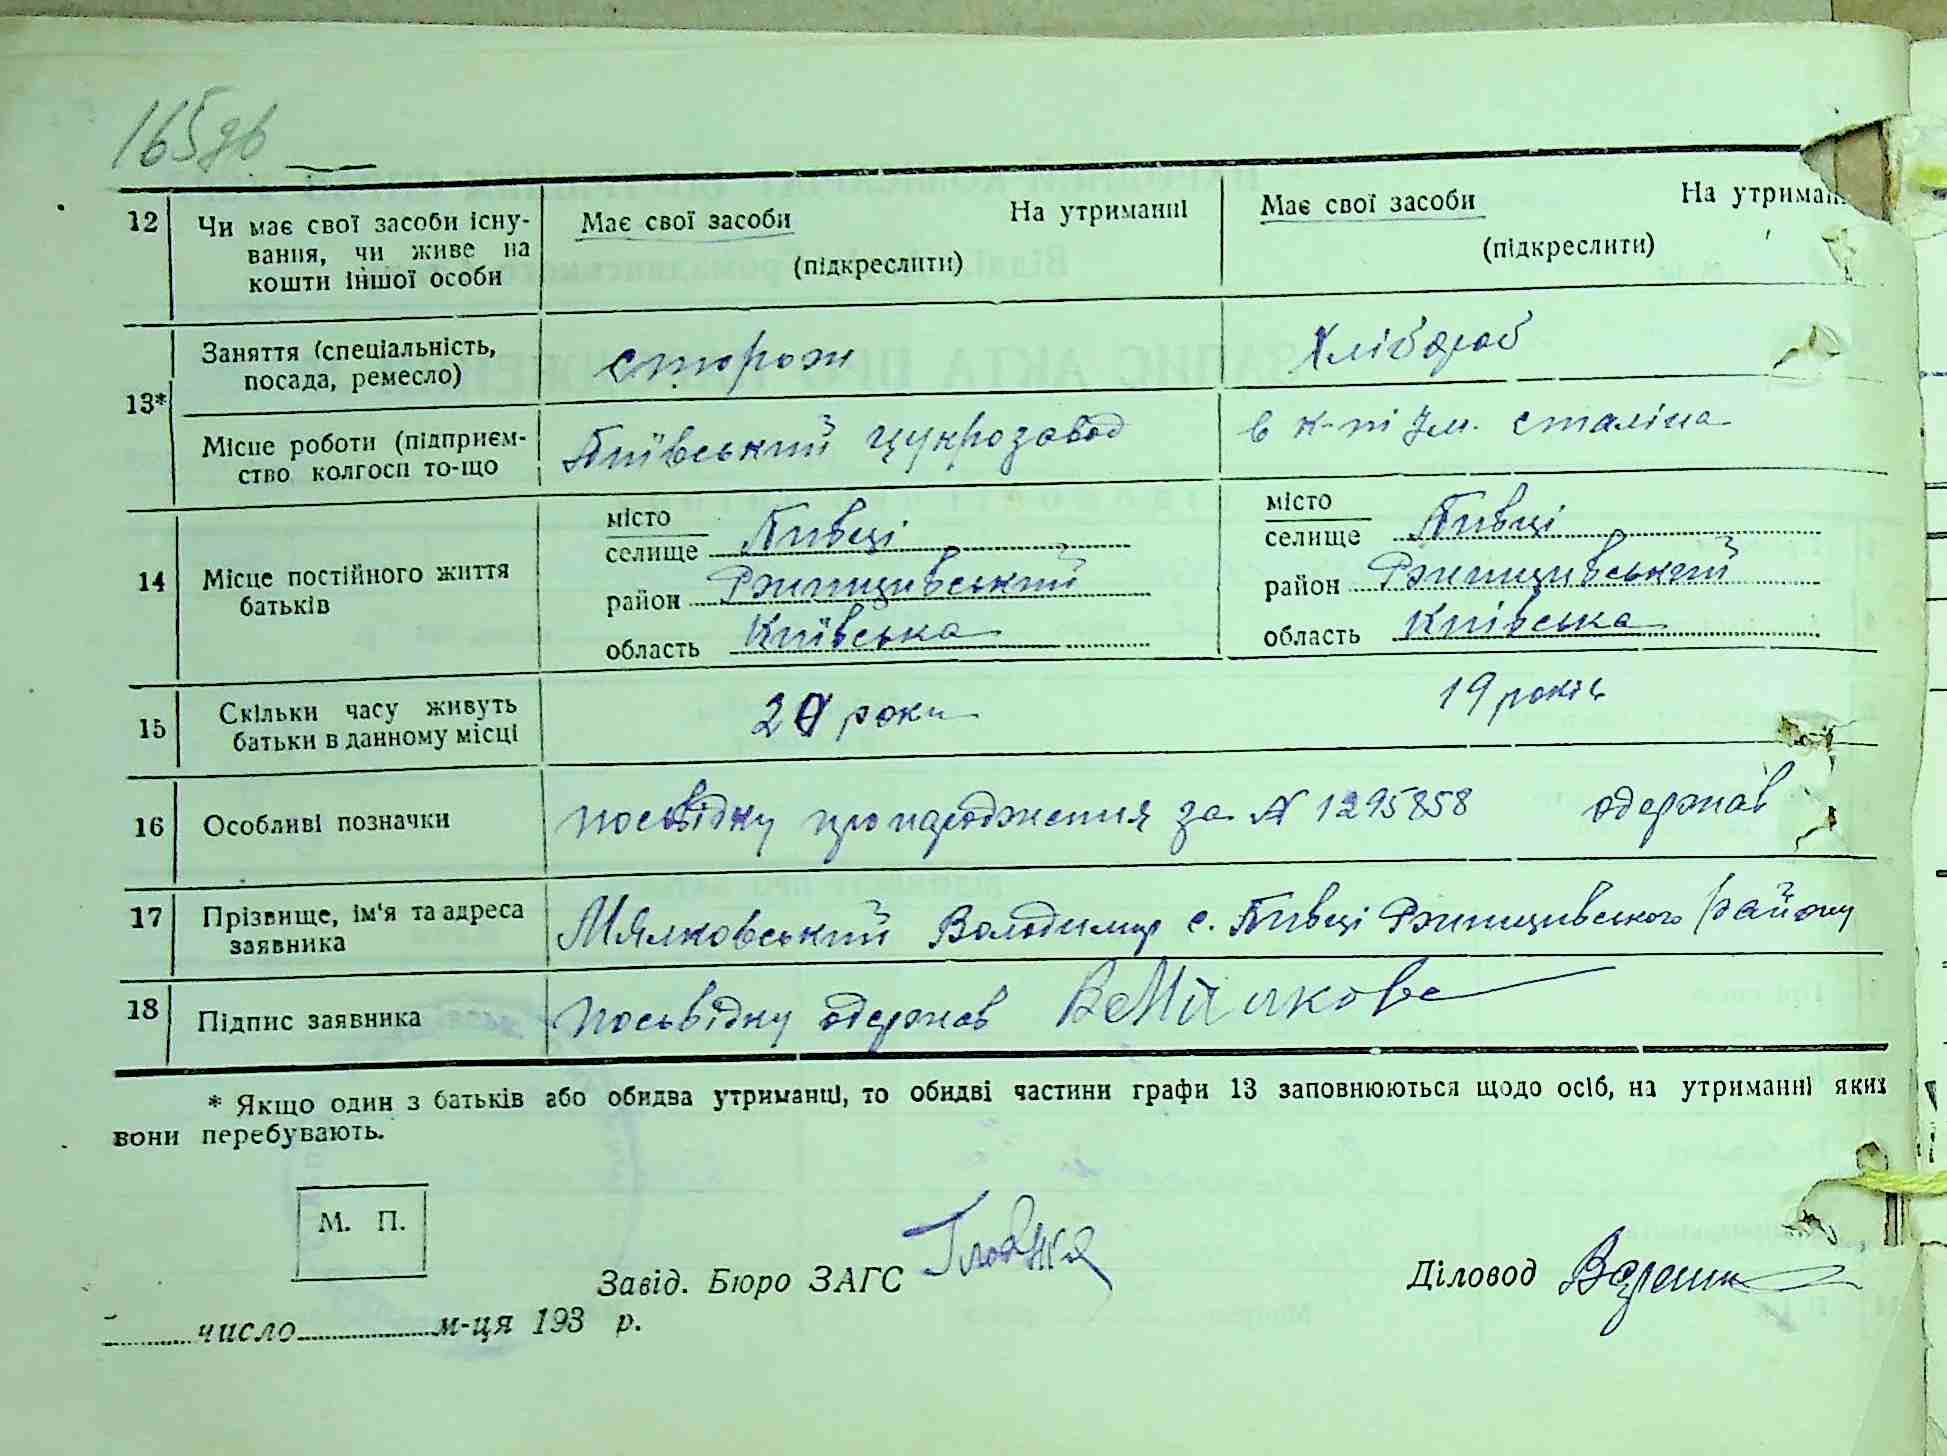 165зв
12 Чи має свої засоби існу-
вання, чи живе на
кошти іншої особи
Має свої засоби На утриманні
(підкреслити)
Має свої засоби На утриман
(підкреслити)
13*
Заняття (спеціальність,
посада, ремесло)
сторож
Хлібороб
Місце роботи (підприєм-
ство колгосп то-що
Пиївський цукрозавод
в к-пі Ім. сталіна
14 Місце постійного життя
батьків
місто
селище Пивці
район Ржищивський
область Київська
місто
селище Пивці
район Ржищивський
область Київська
15 Скільки часу живуть
батьки в данному місці
роки
19 років
16 Особливі позначки
посвідку про народження за № 1295858 одержав
17 Прізвище, ім'я та адреса
заявника
Мялковський Володимир с. Пивці Ржищивського району
18 Підпис заявника
посьвідку одержав
* Якщо один з батьків або обидва утриманці, то обидві частини графи 13 заповнюються щодо осіб, на утриманні яких
вони перебувають.
М. П.
Завід. Бюро ЗАГС
Діловод
число м-ця 193 р.